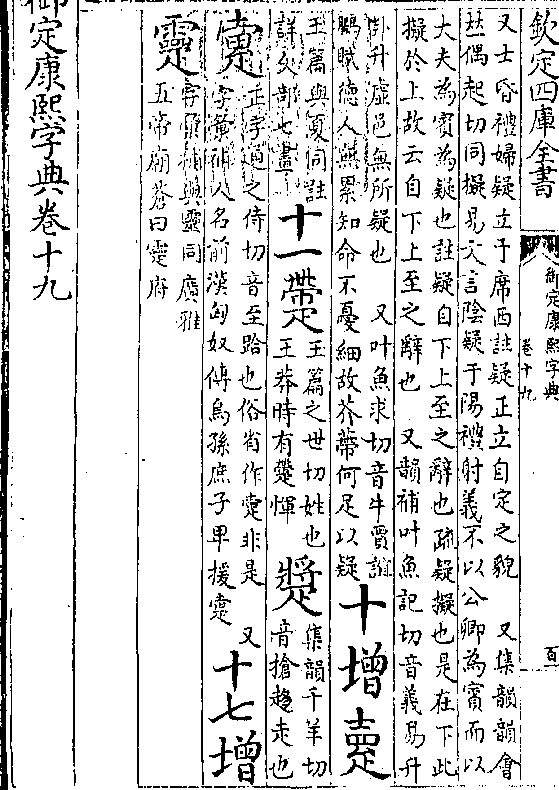 欽定四庫全書
御定康熙字典
卷十九
百
又士昏禮婦疑立于席西註疑正立自定之貌　又集韻韻會
𠀤偶起切同擬易文言陰疑于陽禮射義不以公卿為賓而以
大夫為賓為疑也註疑自下上至之辭也疏疑擬也是在下此
擬於上故云自下上至之辭也　又韻補叶魚記切音義易升
卦升虛邑無所疑也　又叶魚求切音牛賈誼
鵬賦德人無累知命不憂細故芥蔕何足以疑
十增
玉篇與夏同註
詳夂部七畫
十一
玉篇之世切姓也
王莽時有躗惲
集韻千羊切
音搶趨走也
疐
正字通之侍切音至跲也俗省作疐非是　又
字彙補人名前漢匈奴傳烏孫庶子卑援疐
十七增
字彙補與靈同廣雅
五帝廟蒼曰靈府
御定康熙字典卷十九